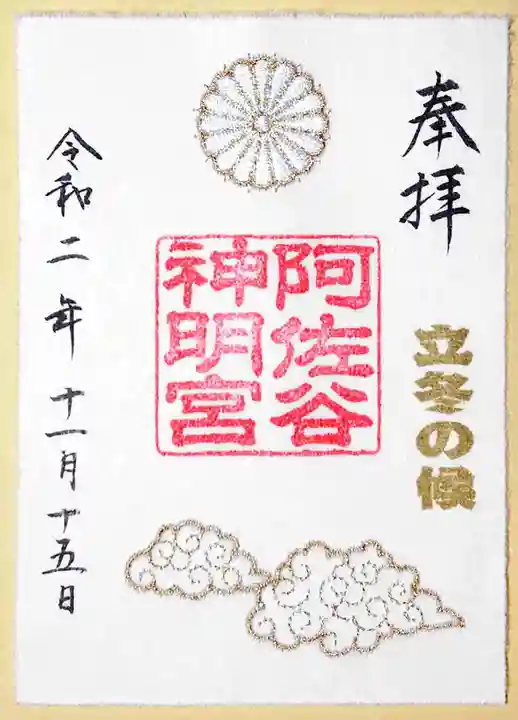 奉拝
立冬の候
阿佐谷
神明宮
令和二年十一月十五日